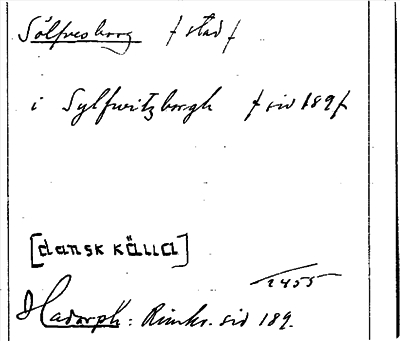 Sölfvesborg / stad /
i Sylfwritzborgh / sid 189 /
[dansk källa]
1455
Hadorph: Rimkr. sid 189.